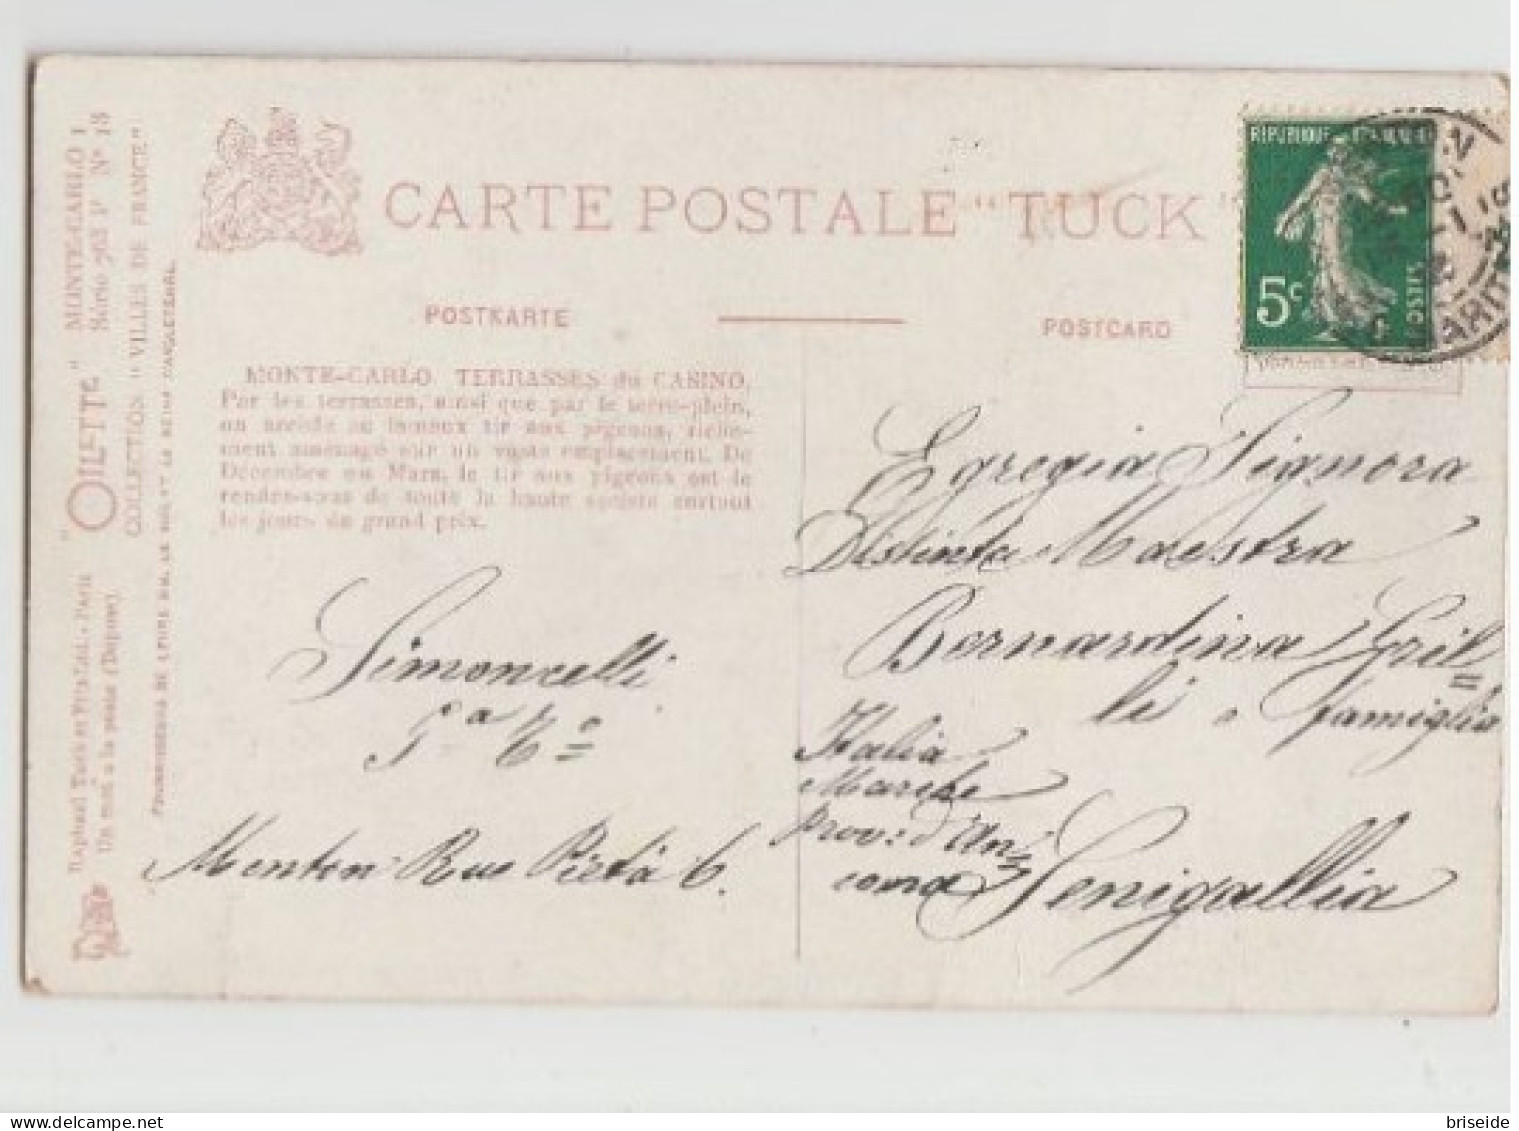 CARTE POSTALE "TUCK"
POSTKARTE
POSTCARD
RÉPUBLIQUE
5c
POSTES
MONTE-CARLO TERRASSES du CASINO.
Par les terrasses, ainsi que par le terre-plein,
on accède au fameux tir aux pigeons, riche-
ment aménagé sur un vaste emplacement. De
Décembre en Mars, le tir aux pigeons est le
rendez-vous de toute la haute société surtout
les jours du grand prix.
Egregia Signora
Distinta Maestra
Bernardina Gril=
li e famiglia
Italia
Marche
Prov: d'An=
cona
Senigallia
Simoncelli
Menton Rue Pietà 6.
"OILETTE" MONTE-CARLO I
Série 963 P N° 18
COLLECTION "VILLES DE FRANCE"
FOURNISSEURS DE LEURS MM. LE ROI ET LA REINE D'ANGLETERRE.
Raphael Tuck et Fils Ltd. - Paris
Un mot à la poste (Déposé).
briseide